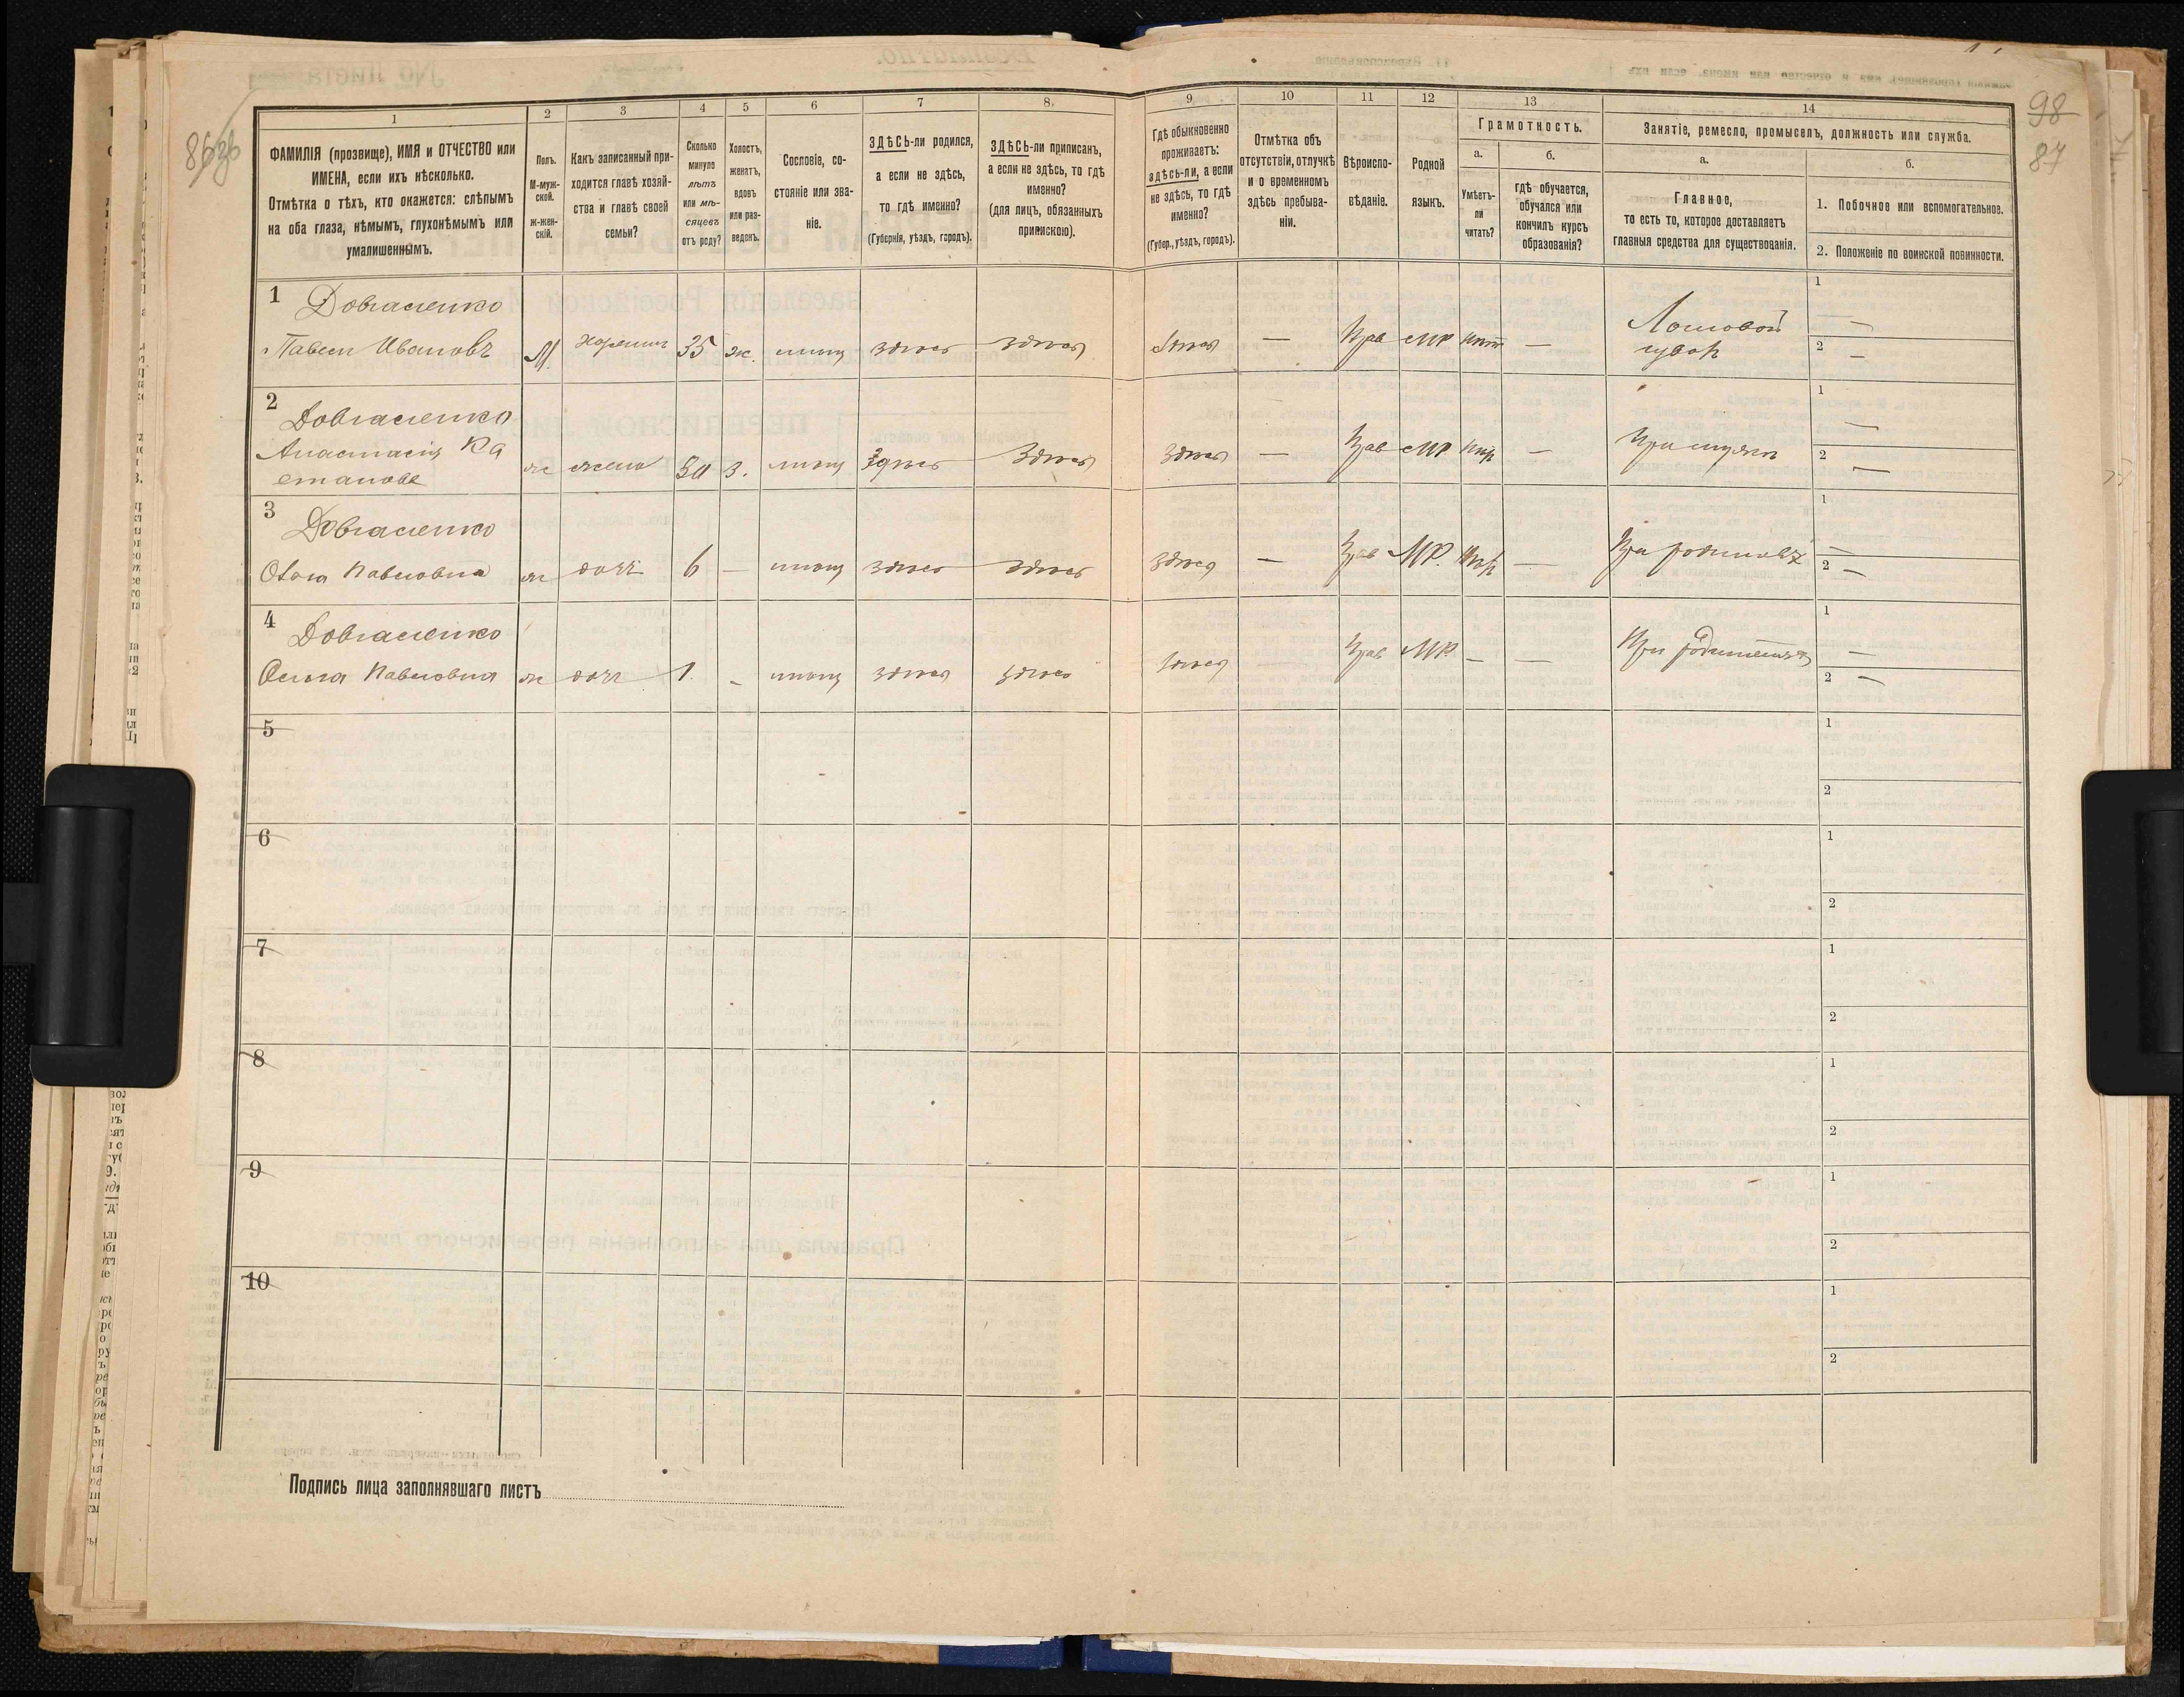 98
87
1
2
3
4
5
6
7
8
9
10
11
12
13
14
ФАМИЛІЯ (прозвище), ИМЯ и ОТЧЕСТВО или
ИМЕНА, если ихъ нѣсколько.
Отмѣтка о тѣхъ, кто окажется: слѣпымъ
на оба глаза, нѣмымъ, глухонѣмымъ или
умалишеннымъ.
Полъ.
М-муж-
ской.
ж-жен-
скій.
Какъ записанный при-
ходится главѣ хозяй-
ства и главѣ своей
семьи?
Сколько
минуло
лѣтъ
или мѣ-
сяцевъ
отъ роду?
Холостъ,
женатъ,
вдовъ
или раз-
веденъ.
Сословіе, со-
стояніе или зва-
ніе.
ЗДѢСЬ-ли родился,
а если не здѣсь,
то гдѣ именно?
(Губернія, уѣздъ, городъ).
ЗДѢСЬ-ли приписанъ,
а если не здѣсь, то гдѣ
именно?
(для лицъ, обязанныхъ
припискою).
Гдѣ обыкновенно
проживаетъ:
здѣсь-ли, а если
не здѣсь, то гдѣ
именно?
(Губер., уѣздъ, городъ).
Отмѣтка объ
отсутствіи, отлучкѣ
и о временномъ
здѣсь пребыва-
ніи.
Вѣроиспо-
вѣданіе.
Родной
языкъ.
Грамотность.
а.
Умѣетъ-
ли
читать?
б.
гдѣ обучается,
обучался или
кончилъ курсъ
образованія?
Занятіе, ремесло, промыселъ, должность или служба.
а.
Главное,
то есть то, которое доставляетъ
главныя средства для существованія.
б.
1. Побочное или вспомогательное.
2. Положеніе по воинской повинности.
1 Довгаленко
Павелъ Ивановъ М. 35 ж. здѣсь здѣсь здѣсь — Прав МР — Ломовой
1 —
2 —
2 Довгаленко
Анастасія Ка
ж жена 30 З. здѣсь здѣсь здѣсь — Прав МР —
1 —
2 —
3 Довгаленко
Павловна ж дочь 6 — здѣсь здѣсь здѣсь — Прав МР. — При
1 —
2 —
4 Довгаленко
Ольга Павловна ж дочь 1. — здѣсь здѣсь здѣсь — Прав МР — — При родителяхъ
1 —
2 —
5
1
2
6
1
2
7
1
2
8
1
2
9
1
2
10
1
2
Подпись лица заполнявшаго листъ